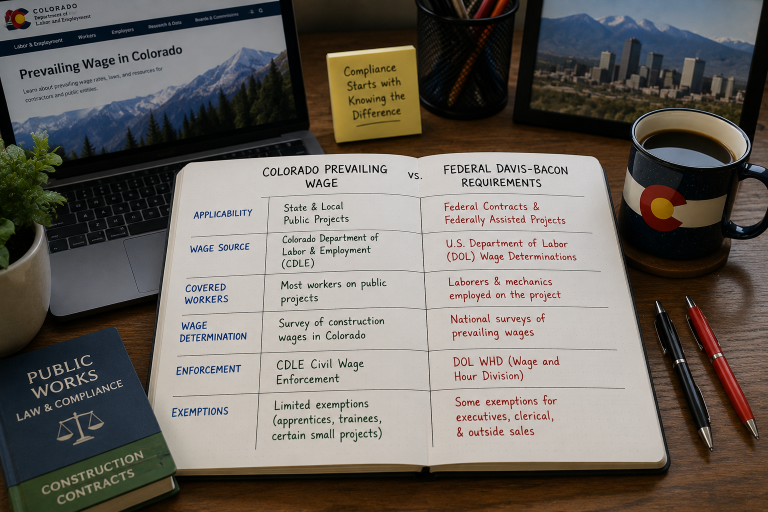 COLORADO
Department of
Labor and Employment
Labor & Employment
Workers
Employers
Research & Data
Boards & Commissions
Prevailing Wage in Colorado
Learn about prevailing wage rates, laws, and resources for
contractors and public entities.
Compliance
Starts with
Knowing the
Difference
COLORADO PREVAILING
WAGE
vs.
FEDERAL DAVIS-BACON
REQUIREMENTS
APPLICABILITY
State & Local
Public Projects
Federal Contracts &
Federally Assisted Projects
WAGE SOURCE
Colorado Department of
Labor & Employment
(CDLE)
U.S. Department of Labor
(DOL) Wage Determinations
COVERED
WORKERS
Most workers on public
projects
Laborers & mechanics
employed on the project
WAGE
DETERMINATION
Survey of construction
wages in Colorado
National surveys of
prevailing wages
ENFORCEMENT
CDLE Civil Wage
Enforcement
DOL WHD (Wage and
Hour Division)
EXEMPTIONS
Limited exemptions
(apprentices, trainees,
certain small projects)
Some exemptions for
executives, clerical,
& outside sales
PUBLIC
WORKS
LAW & COMPLIANCE
CONSTRUCTION
CONTRACTS